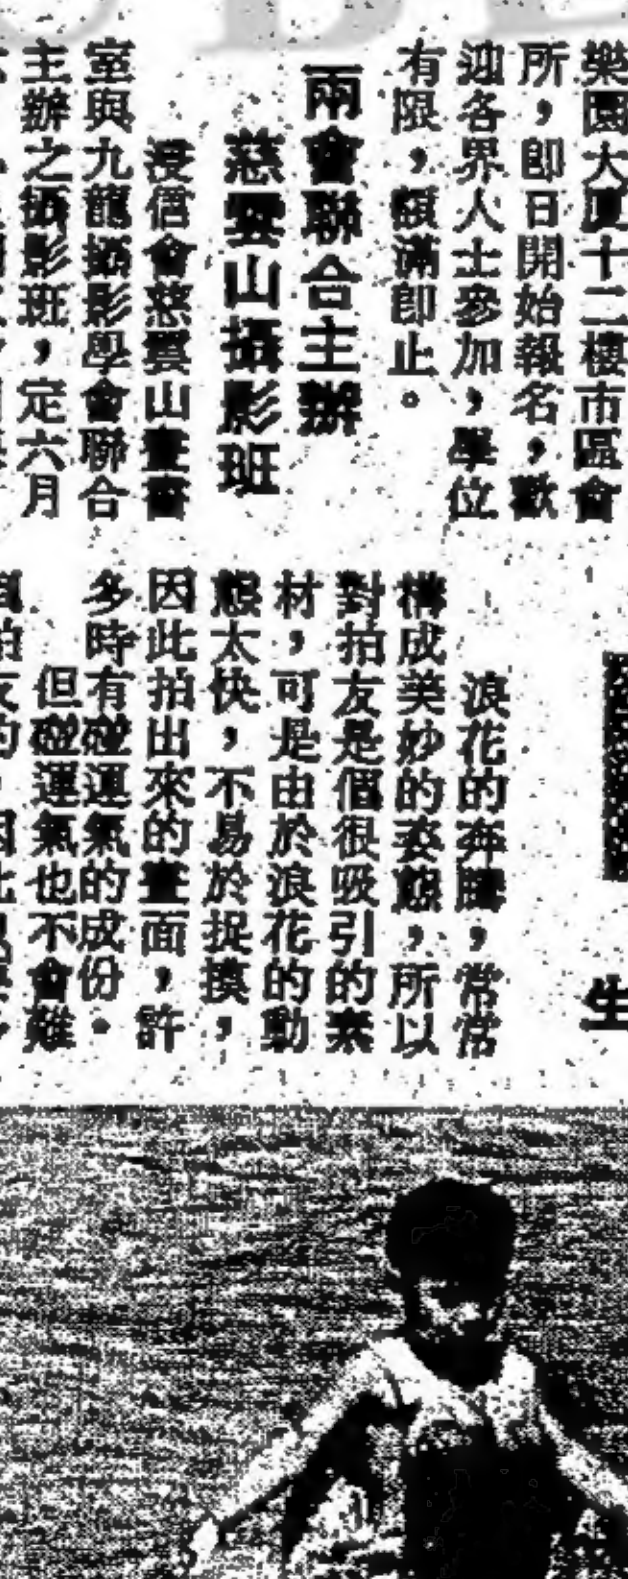 樂園大廈十二樓市區會
所，即日開始報名，歡
迎各界人士參加，學位
有限，額滿即止。
兩會聯合主辦
慈雲山攝影班
浸信會慈雲山圖書
室與九龍攝影學會聯合
主辦之攝影班，定六月
浪花的奔騰，常常
構成美妙的姿態，所以
對拍友是個很吸引的素
材，可是由於浪花的動
態太快，不易於捉摸，
因此拍出來的畫面，許
多時有碰運氣的成份。
但碰運氣也不會難
生